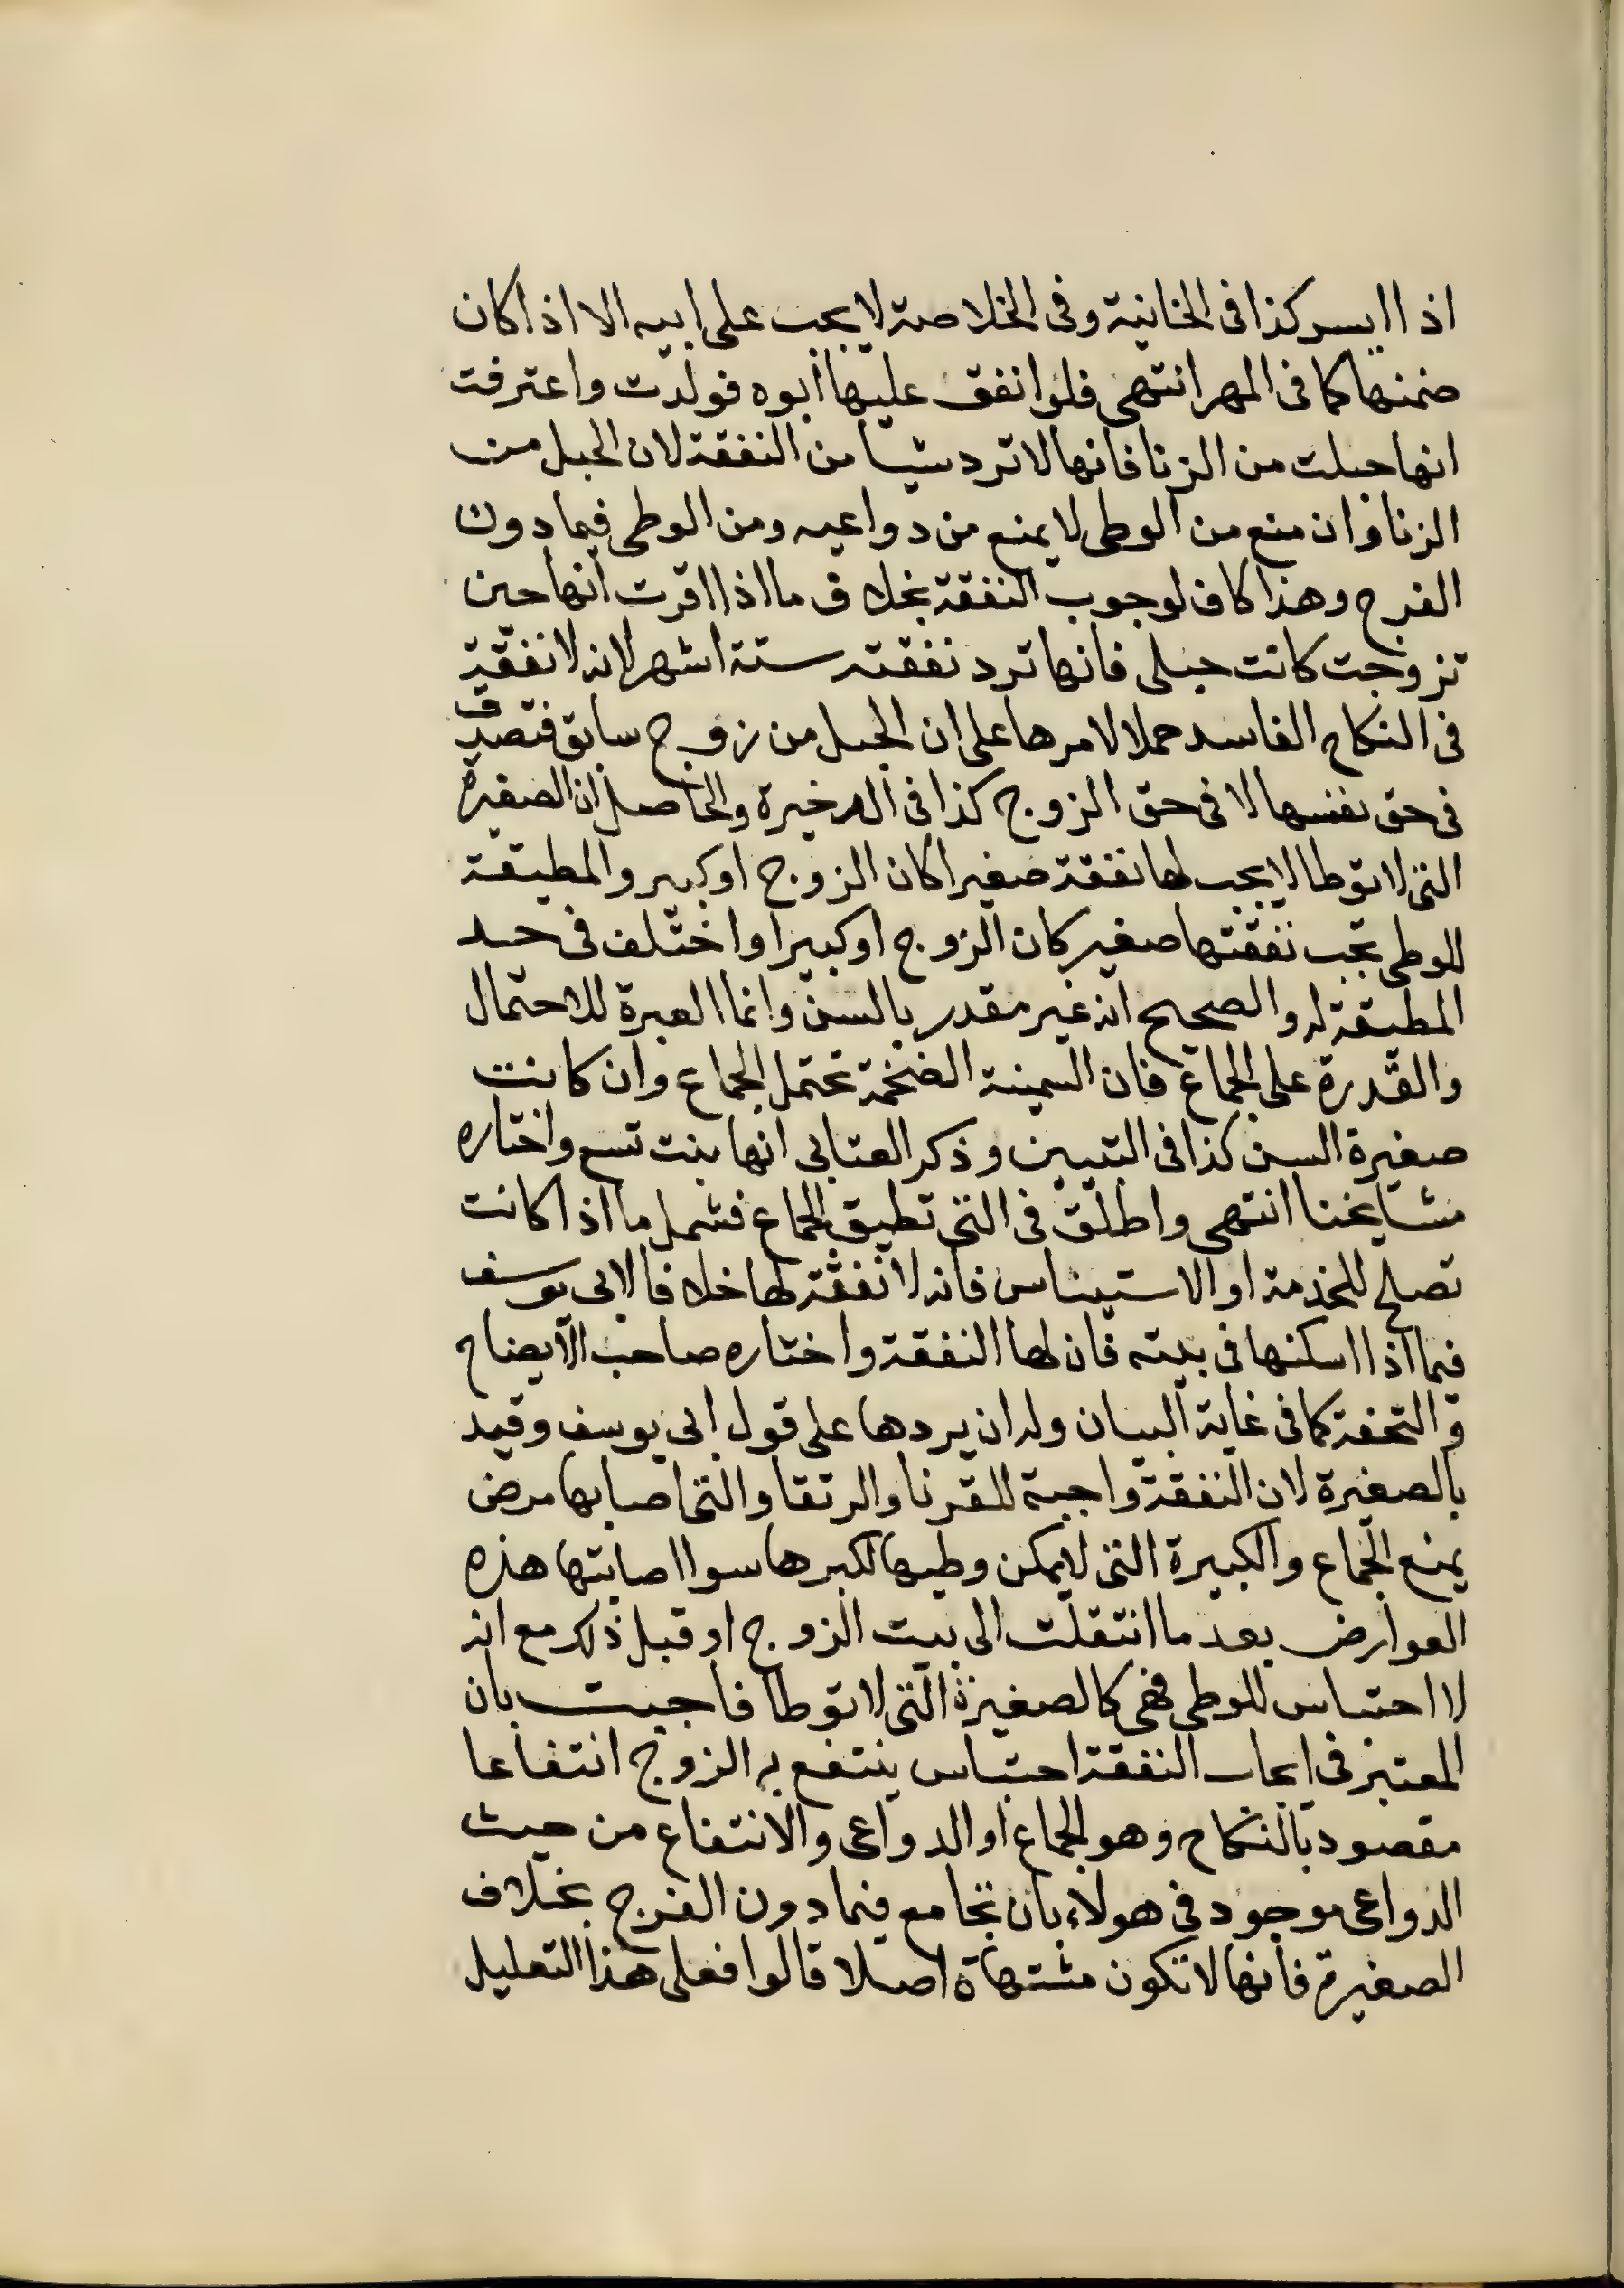 اذا ايسر كذا فى الخانية وفى الخلاصة لا يجب على ابيه الا اذا كان
ضمنها كما فى المهر انتهى فلو انفق عليها ابوه فولدت واعترفت
انها حبلت من الزنا فانها لا ترد شيا من النفقة لان الحبل من
الزنا وان منع من الوطى لا يمنع من دواعيه ومن الوطى فيما دون
الفرج وهذا كاف لوجوب النفقة بخلاف ما اذا اقرت انها حين
تزوجت كانت حبلى فانها ترد نفقته ستة اشهر لانه لا نفقة
فى النكاح الفاسد حملا لامرها على ان الحبل من زوج سابق فتصدق
فى حق نفسها لا فى حق الزوج كذا فى الذخيرة والحاصل ان الصغيرة
التى لا توطا لا يجب لها نفقة صغيرا كان الزوج او كبير والمطيقة
للوطى تجب نفقتها صغير كان الزوج او كبيرا واختلف فى حد
المطيقة له والصحيح انه غير مقدر بالسن وانما العبرة للاحتمال
والقدرة على الجماع فان السمينة الضخمة تحتمل الجماع وان كانت
صغيرة السن كذا فى التبيين وذكر العتابى انها بنت تسع واختاره
مشايخنا انتهى واطلق فى التى تطيق الجماع فشمل ما اذا كانت
تصلح للخدمة او الاستيناس فانه لا نفقة لها خلافا لابى يوسف
فيما اذا اسكنها فى بيته فان لها النفقة واختاره صاحب الايضاح
والتحفة كما فى غاية البيان وله ان يردها على قول ابى يوسف وقيد
بالصغيرة لان النفقة واجبة للقرنا والرتقا والتى اصابها مرض
يمنع الجماع والكبيرة التى لا يمكن وطيها لكبرها سوا اصابتها هذه
العوارض بعد ما انتقلت الى بيت الزوج او قبل ذلك مع انه
لا احتباس للوطى فهى كالصغيرة التى لا توطا فاجيب بان
المعتبر فى ايجاب النفقة احتباس ينتفع به الزوج انتفاعا
مقصود بالنكاح وهو الجماع او الدواعى والانتفاع من حيث
الدواعى موجود فى هولاء بان تجامع فيما دون الفرج بخلاف
الصغيرة فانها لا تكون مشتهاة اصلا قالوا فعلى هذا التعليل